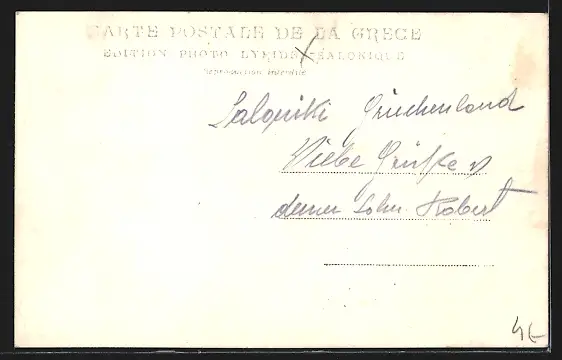 CARTE POSTALE DE LA GRECE
EDITION PHOTO LYRIDES SALONIQUE
Reproduction interdite
Saloniki Griechenland
Viele Grüße v
deinen Sohn Robert
4€